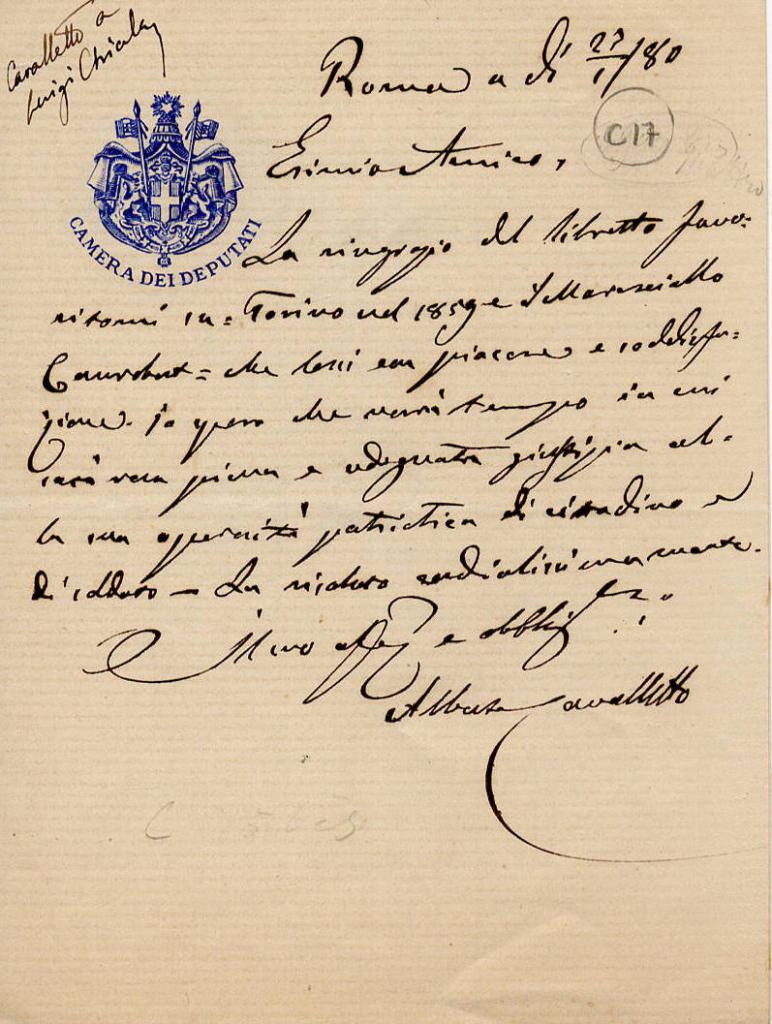 Cavalletto a
Luigi Chiala
Roma a dì 27/1/80
C17
Esimio Amico,
CAMERA DEI DEPUTATI
La ringrazio del libretto favo=
ritomi su = Torino nel 1859 e il Maresciallo
Canrobert = che lessi con piacere e soddisfa=
zione. Io spero che verrà tempo in cui
sarà resa piena e adeguata giustizia al=
la sua operosità patriotica di cittadino e
di soldato — La riverisco cordialissimamente.
Il suo affez e obblig
Alberto Cavalletto